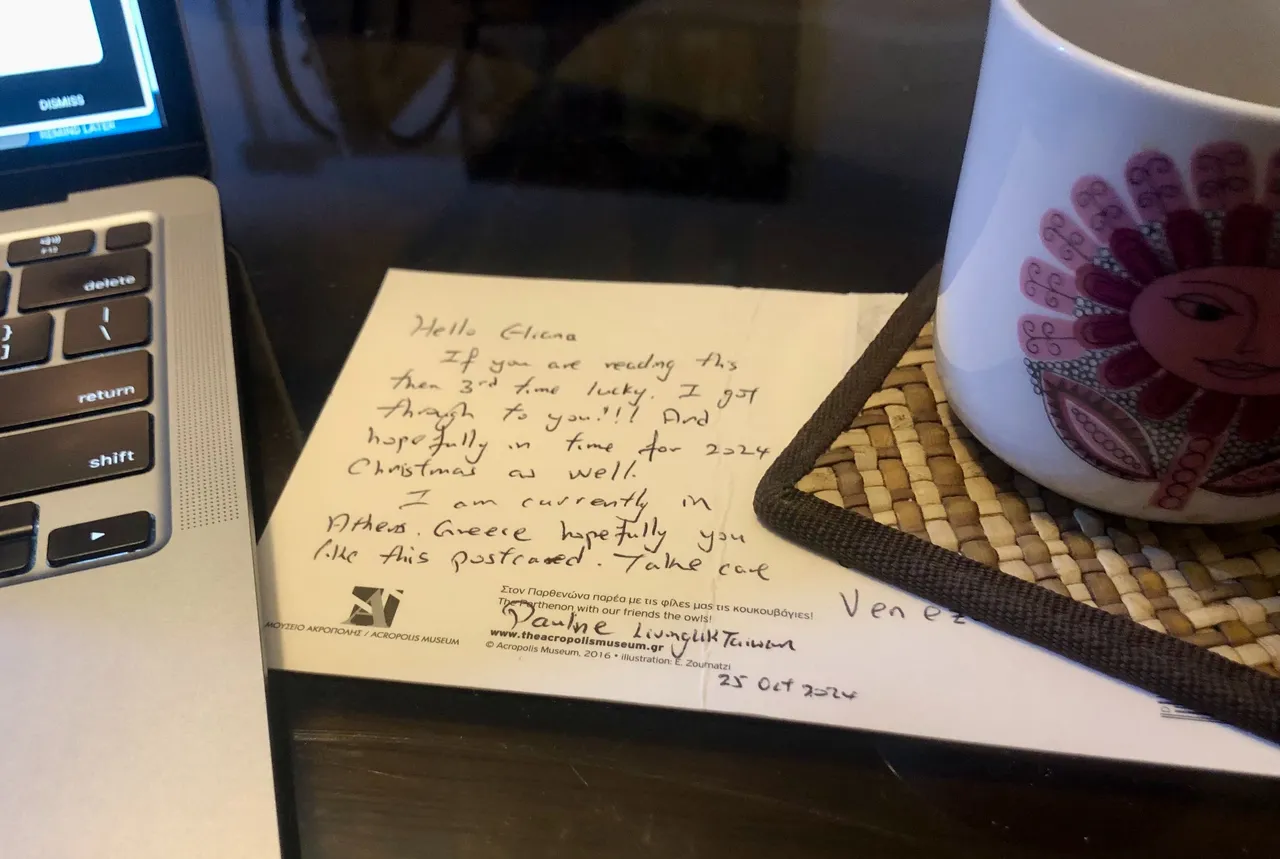 DISMISS
REMIND LATER
delete
}
]
|
\
return
shift
Hello Eliana
If you are reading this
then 3rd time lucky. I got
through to you!!! And
hopefully in time for 2024
Christmas as well.
I am currently in
Athens. Greece hopefully you
like this postcard. Take care
Στον Παρθενώνα παρέα με τις φίλες μας τις κουκουβάγιες!
The Parthenon with our friends the owls!
Pauline LivingUKTaiwan
www.theacropolismuseum.gr
© Acropolis Museum, 2016 • illustration: E. Zournatzi
25 Oct 2024
ΜΟΥΣΕΙΟ ΑΚΡΟΠΟΛΗΣ / ACROPOLIS MUSEUM
Venez